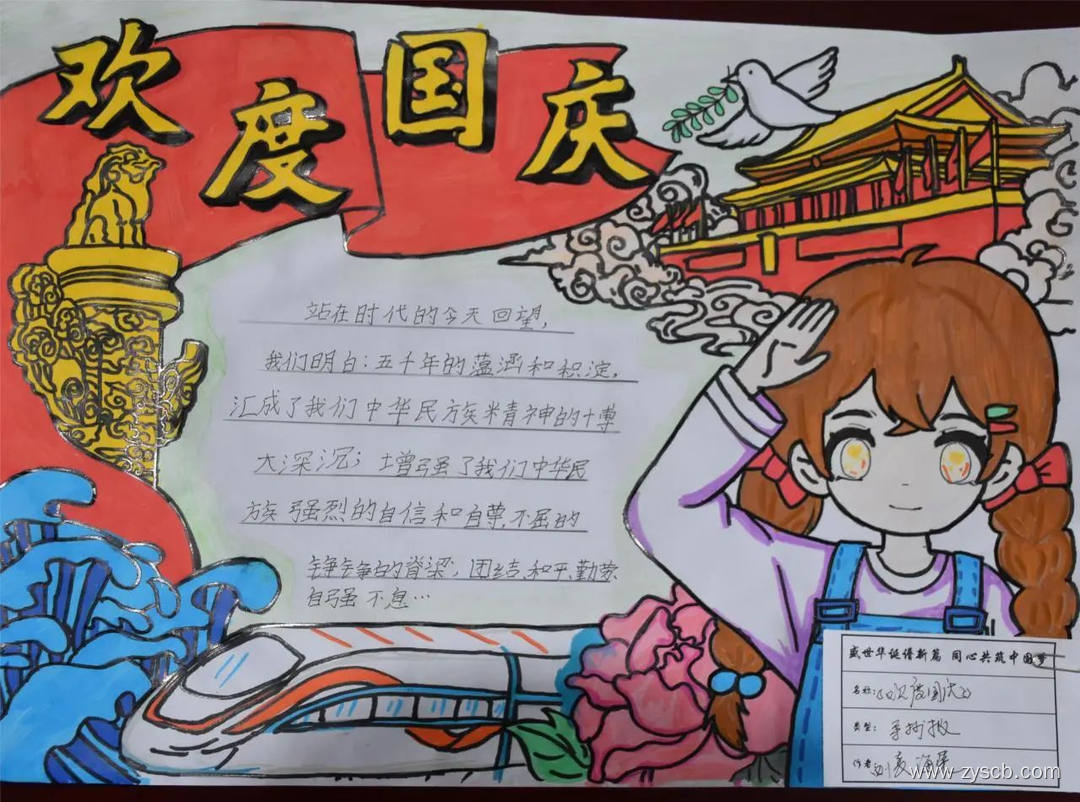 欢度国庆
站在时代的今天回望,
我们明白:五千年的蕴涵和积淀,
汇成了我们中华民族精神的博
大深沉;增强了我们中华民
族强烈的自信和自尊、不屈的
铮铮的脊梁;团结、和平、勤劳、
自强不息…
盛世华诞谱新篇 同心共筑中国梦
名称:《欢度国庆》
类型:手抄报
作者:
www.zyscb.com